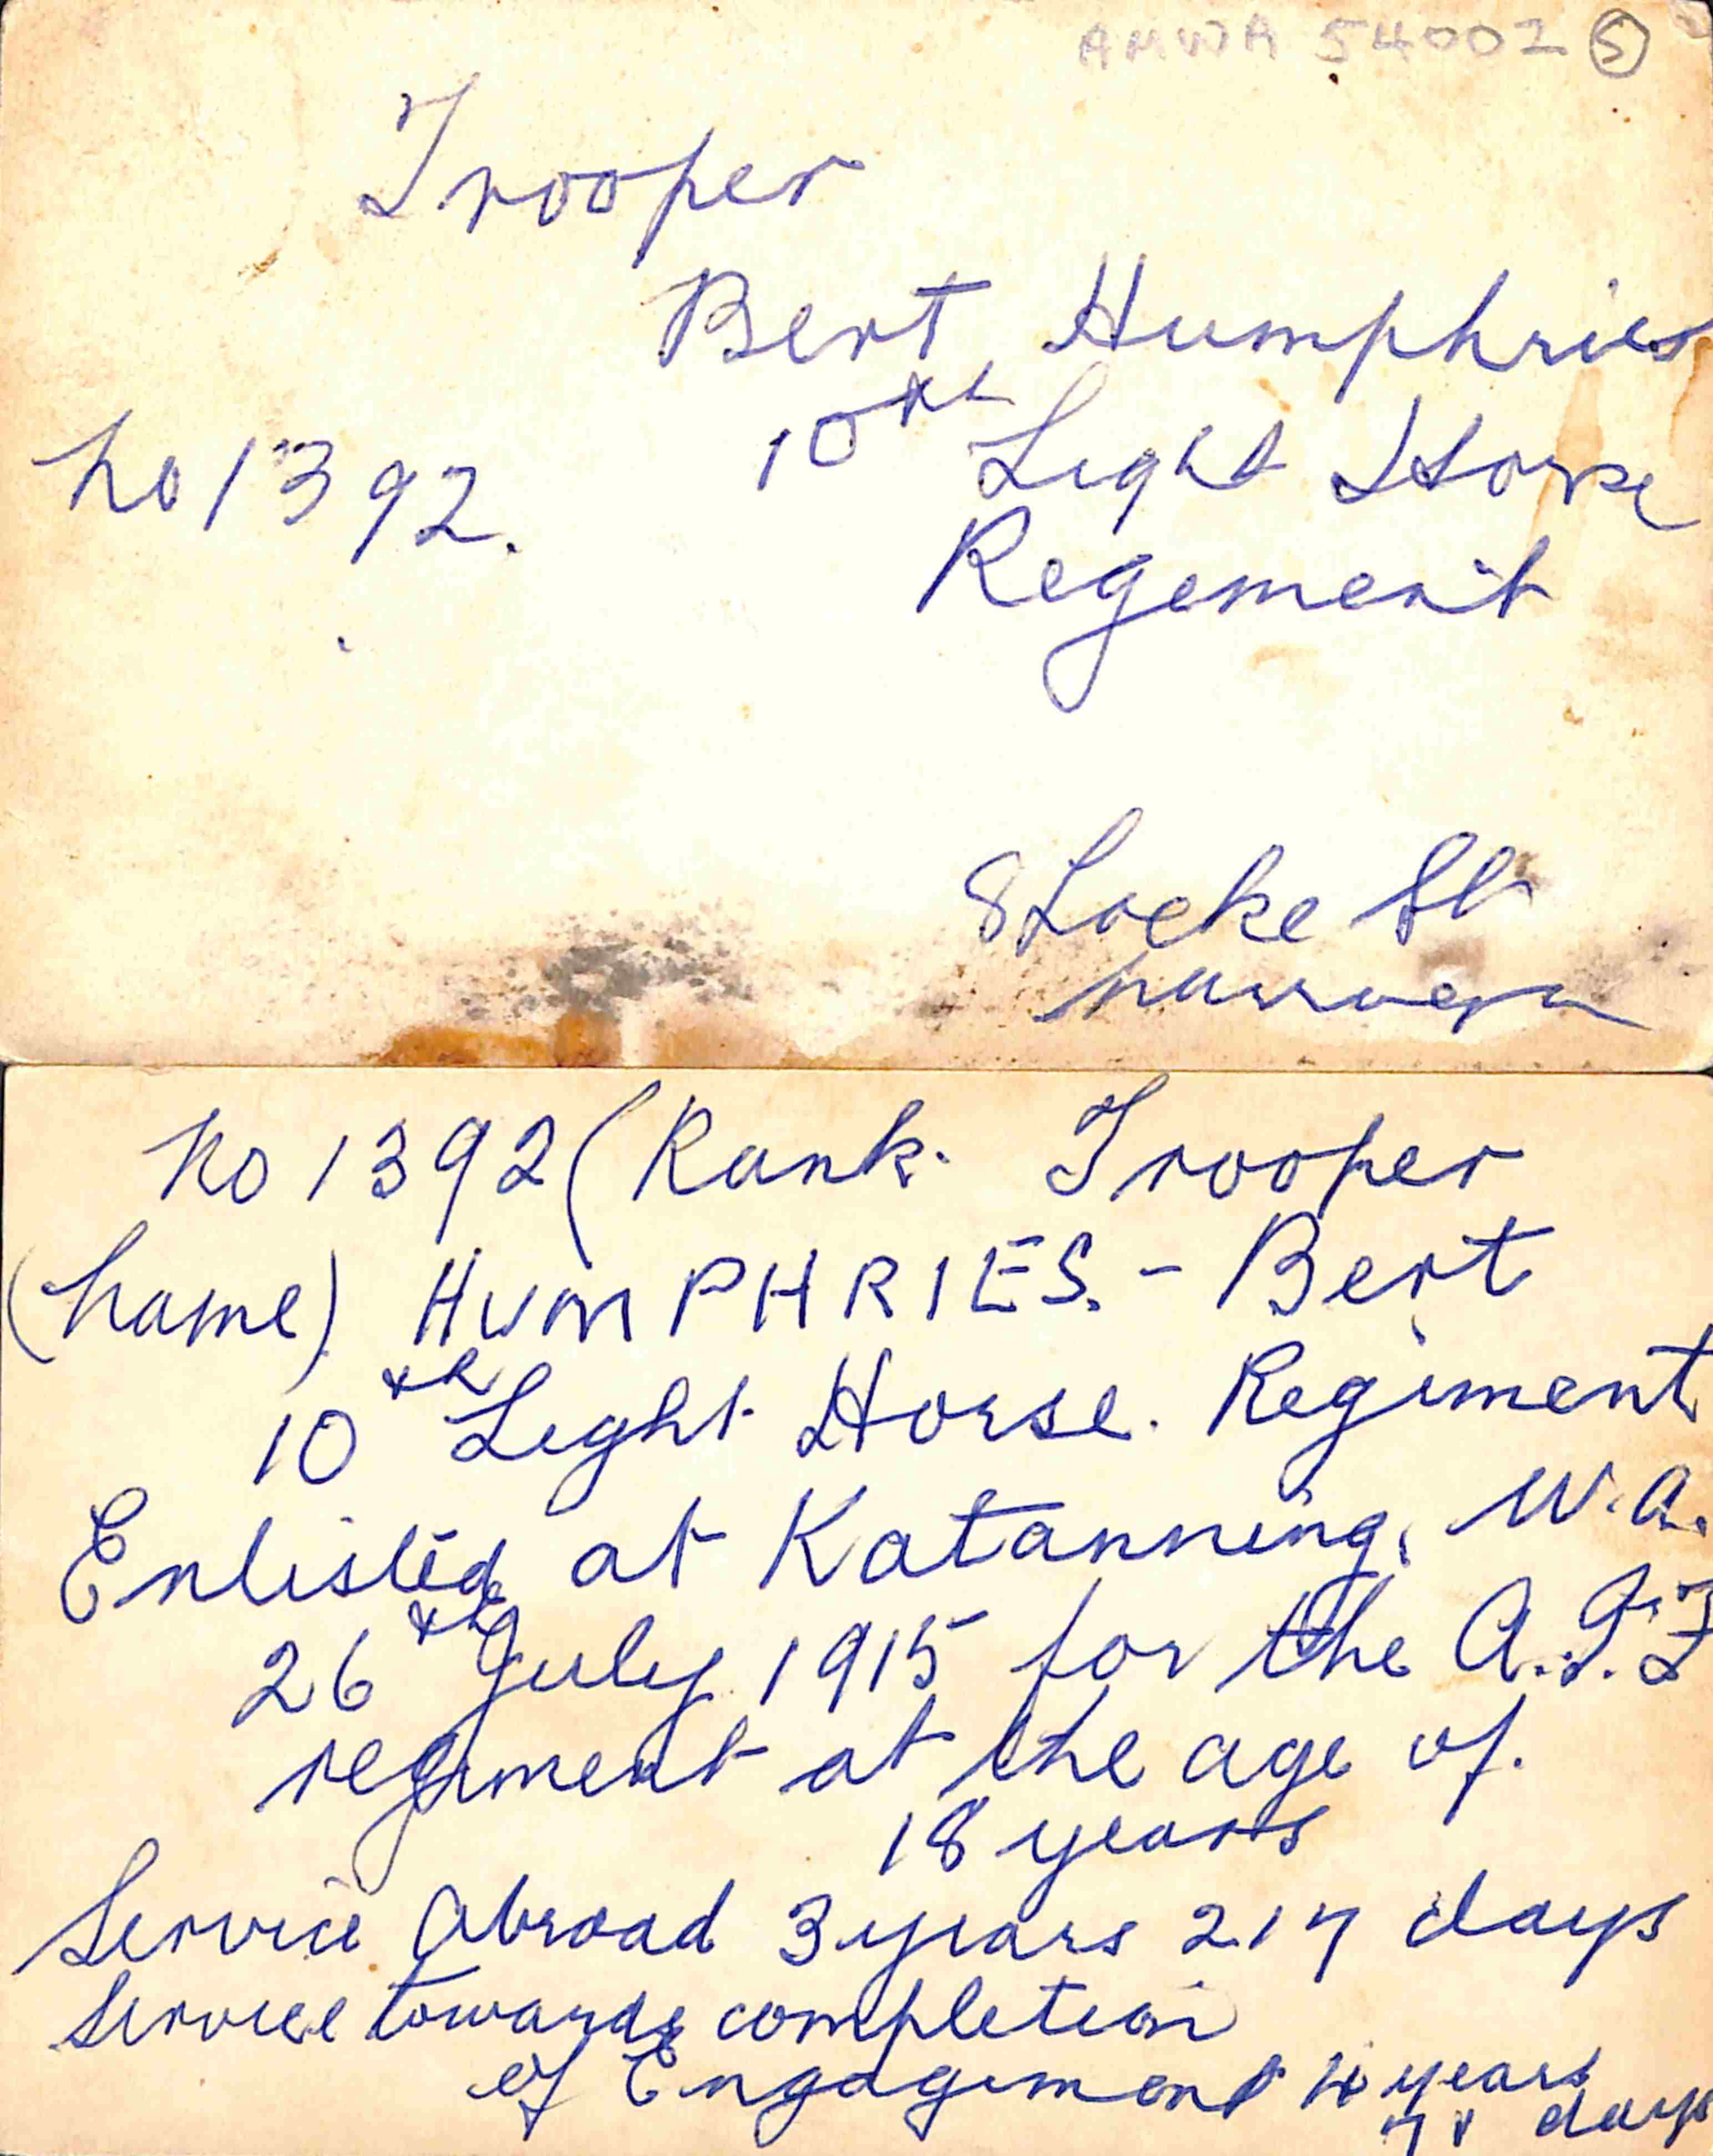 AMWA 54002 5
Trooper
Bert Humphries
No 1392.
10th Light Horse
Regement
8 Locke St
Narrogin
No 1392 (Rank. Trooper
(Name) HUMPHRIES. - Bert
10th Light Horse. Regiment
Enlisted at Katanning, W.A.
26th July 1915 for the A.I.F
regiment at the age of.
18 years
Service Abroad 3 years 217 days
Service towards completion
of Engagement 4 years
days